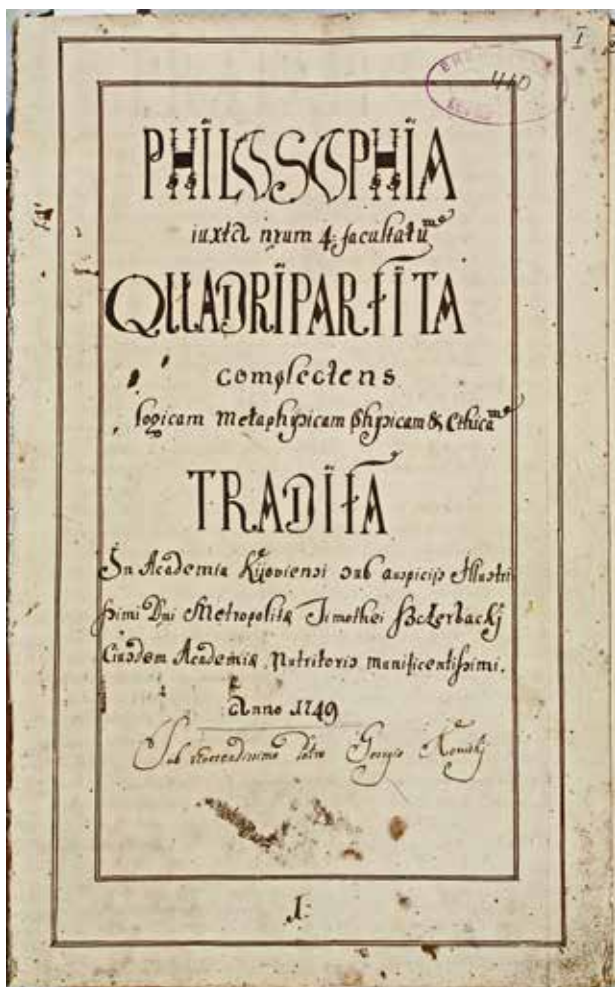 I
440
PHÏLOSOPHÏA
iuxta nrum 4: facultatū me
QUADRÏPARTÏTA
complectens
logicam Metaphysicam Physicam & Ethica me
TRADÏTA
In Academia Kijoviensi sub auspicijs Illustri
ssimi Dni Metropolitæ Timothei Szczerbackj
Eiusdem Academiæ Nutritoris munificentissimi.
Anno 1749
Sub Reverendissimo Patre Georgio Koniskj
I: